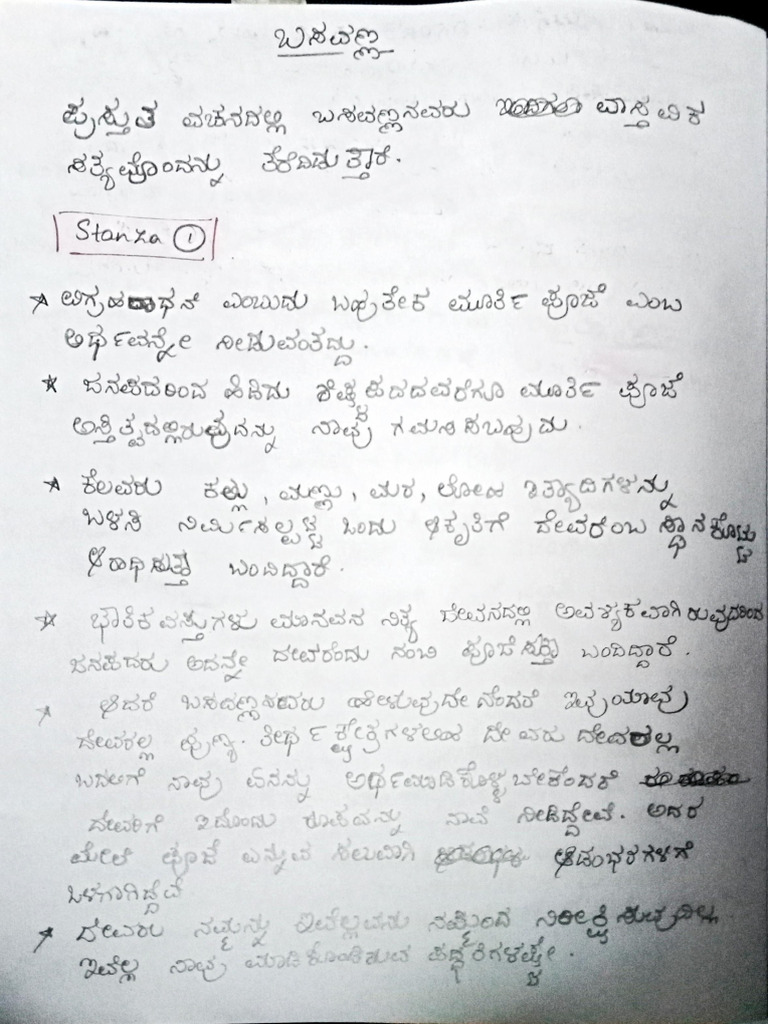 ಬಸವಣ್ಣ
ಪ್ರಸ್ತುತ ವಚನದಲ್ಲಿ ಬಸವಣ್ಣನವರು ವಾಸ್ತವಿಕ
ಸತ್ಯವೊಂದನ್ನು ತೆರೆದಿಡುತ್ತಾರೆ.
Stanza 1
* ವಿಗ್ರಹರಾಧನೆ ಎಂಬುದು ಬಹುತೇಕ ಮೂರ್ತಿ ಪೂಜೆ ಎಂಬ
ಅರ್ಥವನ್ನೇ ನೀಡುವಂತದ್ದು.
* ಜನಪದರಿಂದ ಹಿಡಿದು ಶಿಷ್ಟಪದದವರೆಗೂ ಮೂರ್ತಿ ಪೂಜೆ
ಅಸ್ತಿತ್ವದಲ್ಲಿರುವುದನ್ನು ನಾವು ಗಮನಿಸಬಹುದು.
* ಕೆಲವರು ಕಲ್ಲು, ಮಣ್ಣು, ಮರ, ಲೋಹ ಇತ್ಯಾದಿಗಳನ್ನು
ಬಳಸಿ ನಿರ್ಮಿಸಲ್ಪಟ್ಟ ಒಂದು ಆಕೃತಿಗೆ ದೇವರೆಂಬ ಸ್ಥಾನಕೊಟ್ಟು
ಆರಾಧಿಸುತ್ತಾ ಬಂದಿದ್ದಾರೆ.
* ಭೌತಿಕ ವಸ್ತುಗಳು ಮಾನವನ ನಿತ್ಯ ಜೀವನದಲ್ಲಿ ಅವಶ್ಯಕವಾಗಿರುವುದರಿಂದ
ಜನಪದರು ಅದನ್ನೇ ದೇವರೆಂದು ನಂಬಿ ಪೂಜಿಸುತ್ತಾ ಬಂದಿದ್ದಾರೆ.
* ಆದರೆ ಬಸವಣ್ಣನವರು ಹೇಳುವುದೇನೆಂದರೆ ಇವುಯಾವು
ದೇವರಲ್ಲ ಪುಣ್ಯ ತೀರ್ಥ ಕ್ಷೇತ್ರಗಳಲಿಹ ದೇವರು ದೇವರಲ್ಲ
ಬದಲಿಗೆ ನಾವು ಏನನ್ನು ಅರ್ಥಮಾಡಿಕೊಳ್ಳಬೇಕೆಂದರೆ
ದೇವರಿಗೆ ಇದೊಂದು ರೂಪವನ್ನು ನಾವೆ ನೀಡಿದ್ದೇವೆ. ಅದರ
ಮೇಲೆ ಪೂಜೆ ಎನ್ನುವ ಸಲುವಾಗಿ ಆಡಂಭರಗಳಿಗೆ
ಒಳಗಾಗಿದ್ದೆವೆ
* ದೇವರು ನಮ್ಮನ್ನು ಇವೆಲ್ಲವನು ನಮ್ಮಿಂದ ನಿರೀಕ್ಷಿಸುವುದಿಲ್ಲ
ಇವೆಲ್ಲ ನಾವು ಮಾಡಿಕೊಂಡಿರುವ ಪದ್ಧತಿಗಳಷ್ಟೇ.